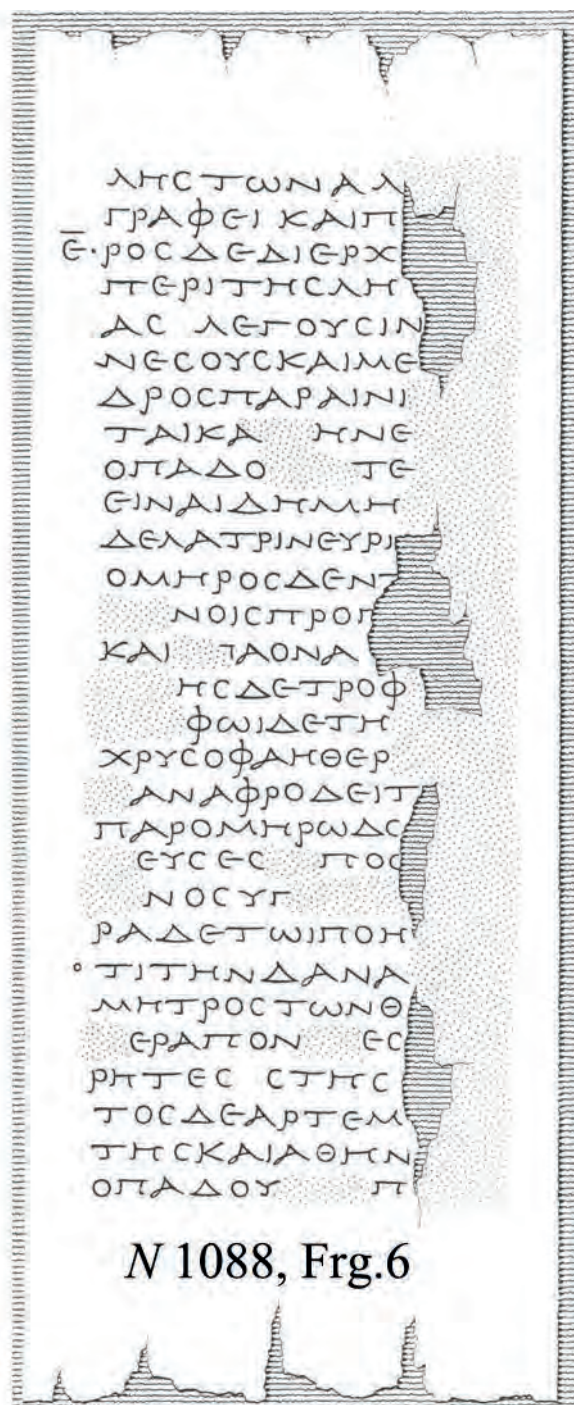 ΛΗC ΤΩΝΑΛ
ΓΡΑΦΕΙ ΚΑΙΠ
Ε̅·ΡΟC ΔΕΔΙΕΡΧ
ΠΕΡΙΤΗCΛΗ
ΑC ΛΕΓΟΥCΙΝ
ΝΕCΟΥCΚΑΙΜΕ
ΔΡΟCΠΑΡΑΙΝΙ
ΤΑΙΚΑ ΗΝΕ
ΟΠΑΔΟ ΤΕ
ΕΙΝΑΙΔΗΜΗ
ΔΕΛΑΤΡΙΝΕΥΡΙ
ΟΜΗΡΟCΔΕΝΤ
ΝΟΙCΠΡΟΠ
ΚΑΙ ΠΑΟΝΑ
ΗCΔΕΤΡΟΦ
ΦΩΙΔΕΤΗ
ΧΡΥCΟΦΑΗΘΕΡ
ΑΝΑΦΡΟΔΕΙΤ
ΠΑΡΟΜΗΡΩΔC
ΕΥCΕC ΠΟC
ΝΟCΥΓ
ΡΑΔΕΤΩΙΠΟΗ
ο ΤΙΤΗΝΔΑΝΑ
ΜΗΤΡΟCΤΩΝΘ
ΕΡΑΠΟΝ ΕC
ΡΗΤΕC CΤΗC
ΤΟCΔΕΑΡΤΕΜ
ΤΗCΚΑΙΑΘΗΝ
ΟΠΑΔΟΥ Π
N 1088, Frg.6